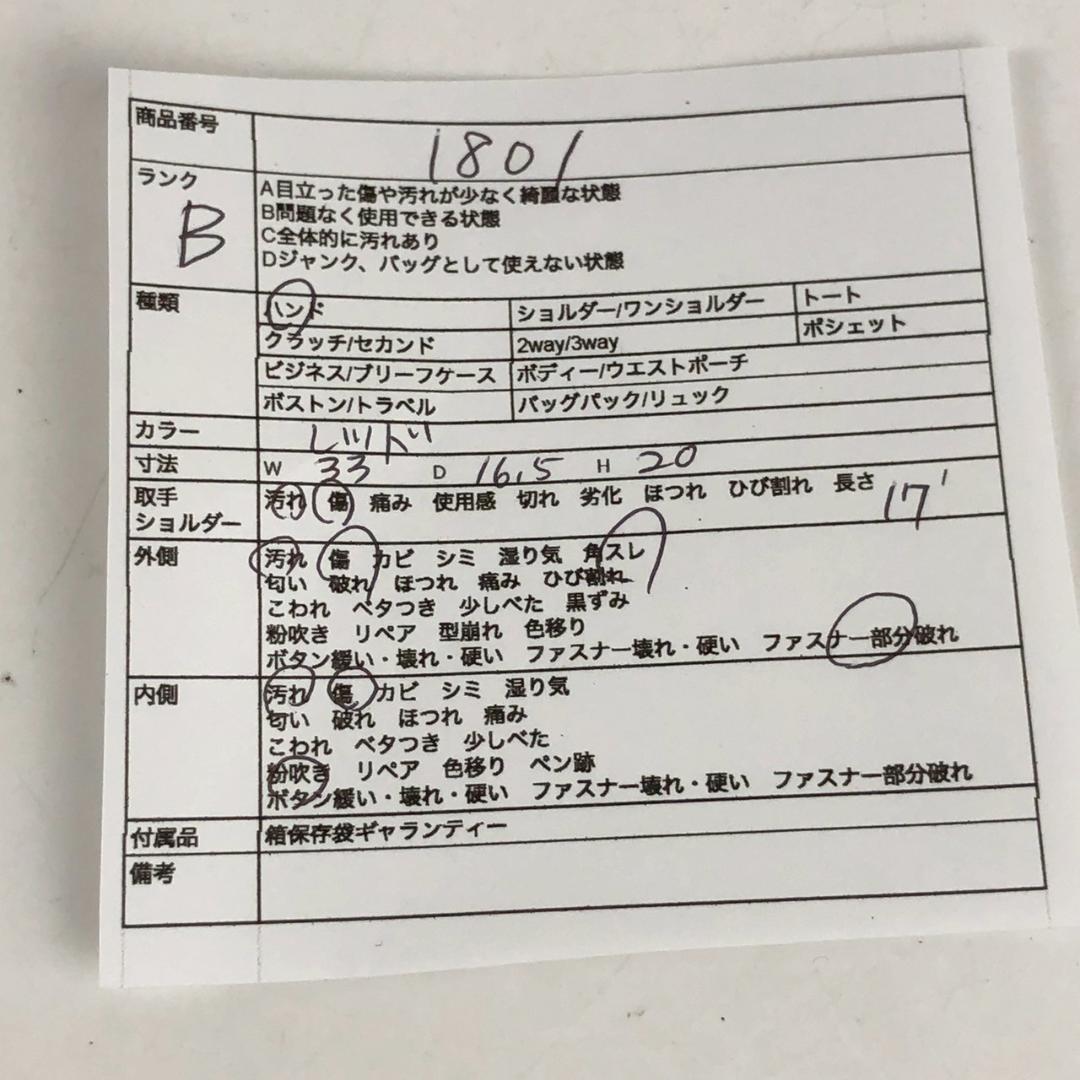 商品番号 1801
ランク B
A目立った傷や汚れが少なく綺麗な状態
B問題なく使用できる状態
C全体的に汚れあり
Dジャンク、バッグとして使えない状態
種類 ハンド ショルダー/ワンショルダー トート
クラッチ/セカンド 2way/3way ポシェット
ビジネス/ブリーフケース ボディー/ウエストポーチ
ボストン/トラベル バッグパック/リュック
カラー レッド
寸法 W 33 D 16.5 H 20
取手 汚れ 傷 痛み 使用感 切れ 劣化 ほつれ ひび割れ 長さ 17
ショルダー
外側 汚れ 傷 カビ シミ 湿り気 角スレ
匂い 破れ ほつれ 痛み ひび割れ
こわれ ベタつき 少しべた 黒ずみ
粉吹き リペア 型崩れ 色移り
ボタン緩い・壊れ・硬い ファスナー壊れ・硬い ファスナー部分破れ
内側 汚れ 傷 カビ シミ 湿り気
匂い 破れ ほつれ 痛み
こわれ ベタつき 少しべた
粉吹き リペア 色移り ペン跡
ボタン緩い・壊れ・硬い ファスナー壊れ・硬い ファスナー部分破れ
付属品 箱保存袋ギャランティー
備考